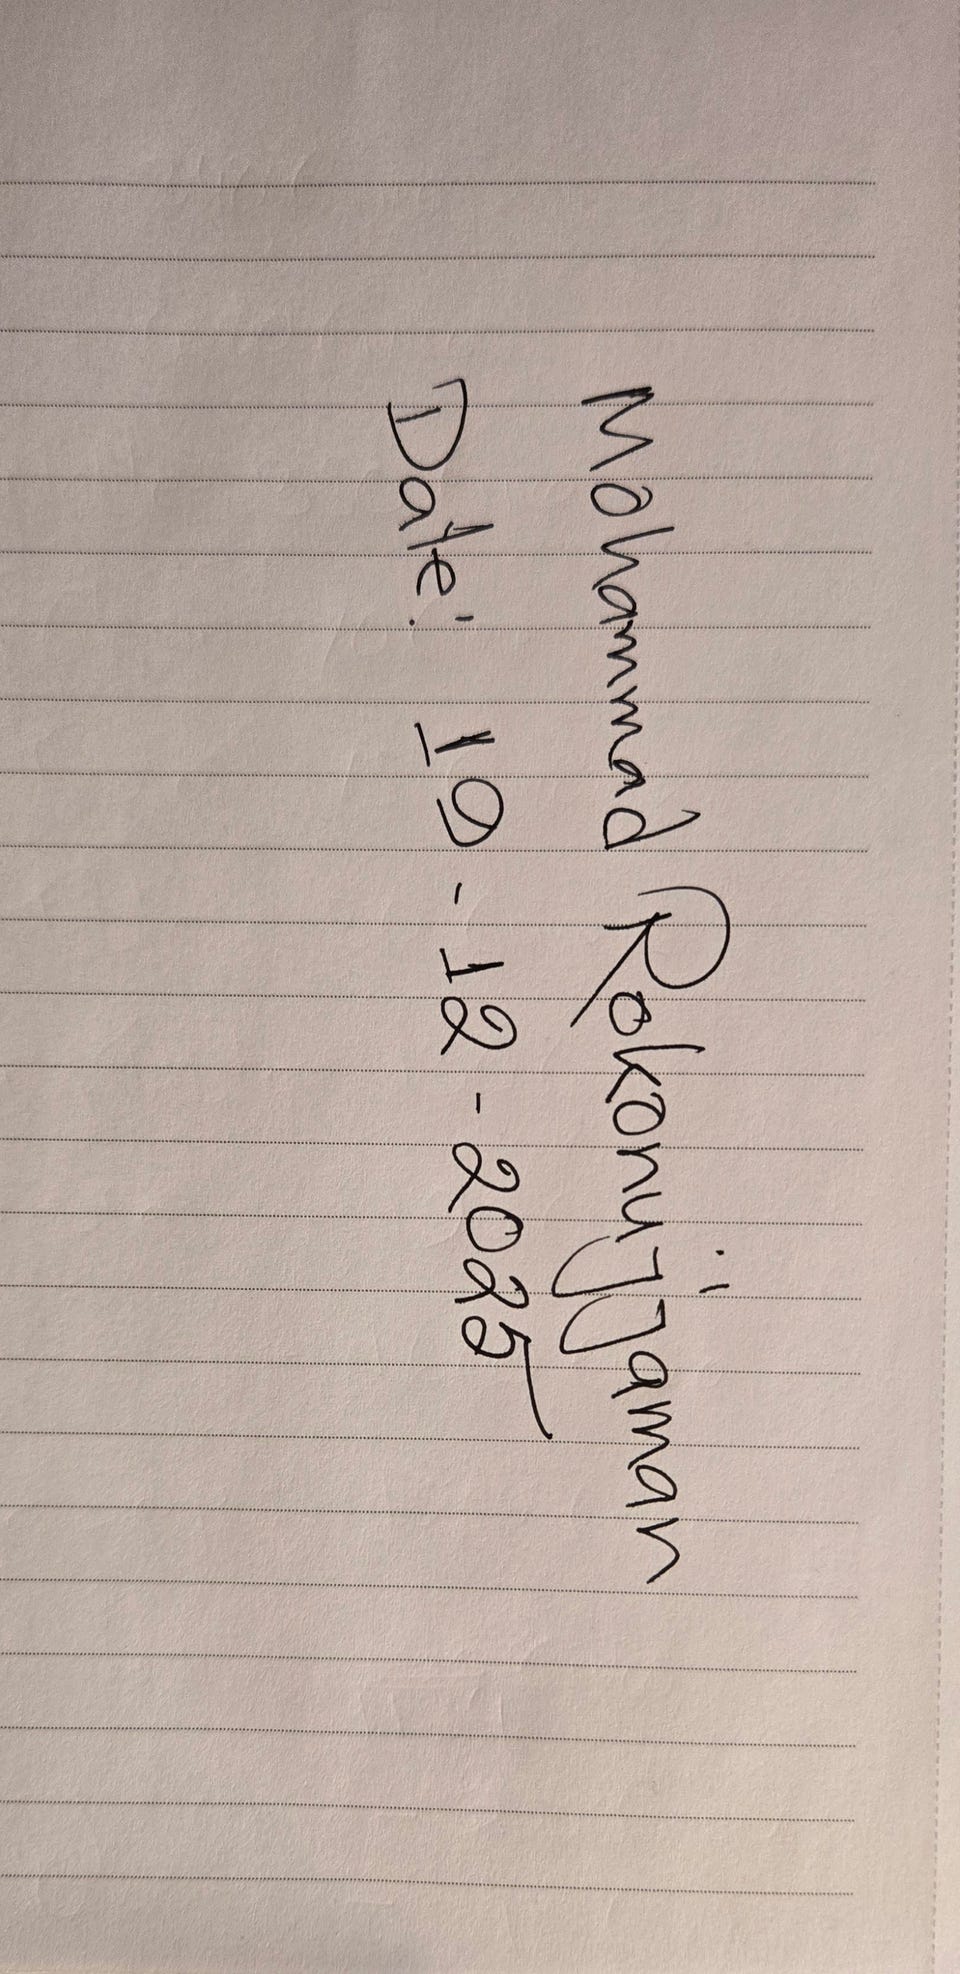 Mohammad Rokonujjaman
Date: 19-12-2025